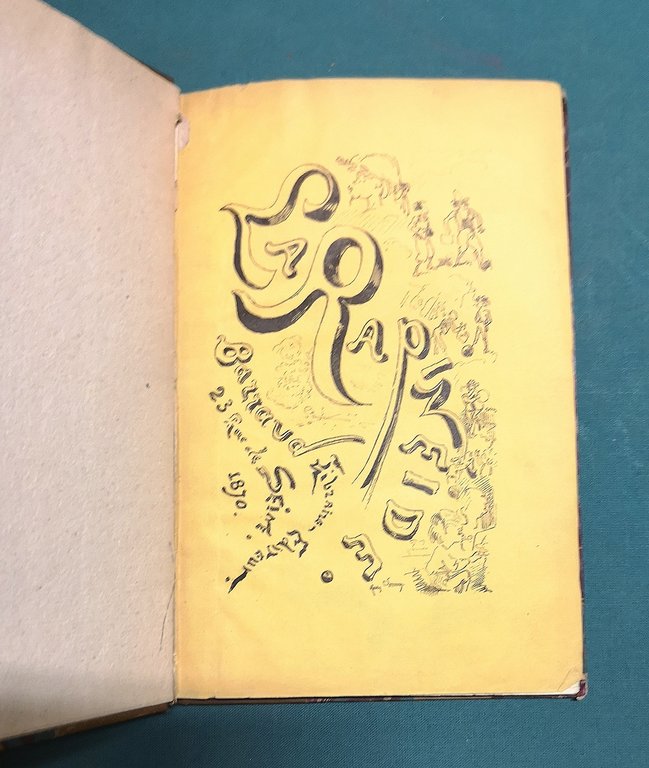 LA
RAPINEIDE.
Barraud Libraire, Editeur.
23 Rue de SEINE.
1870.